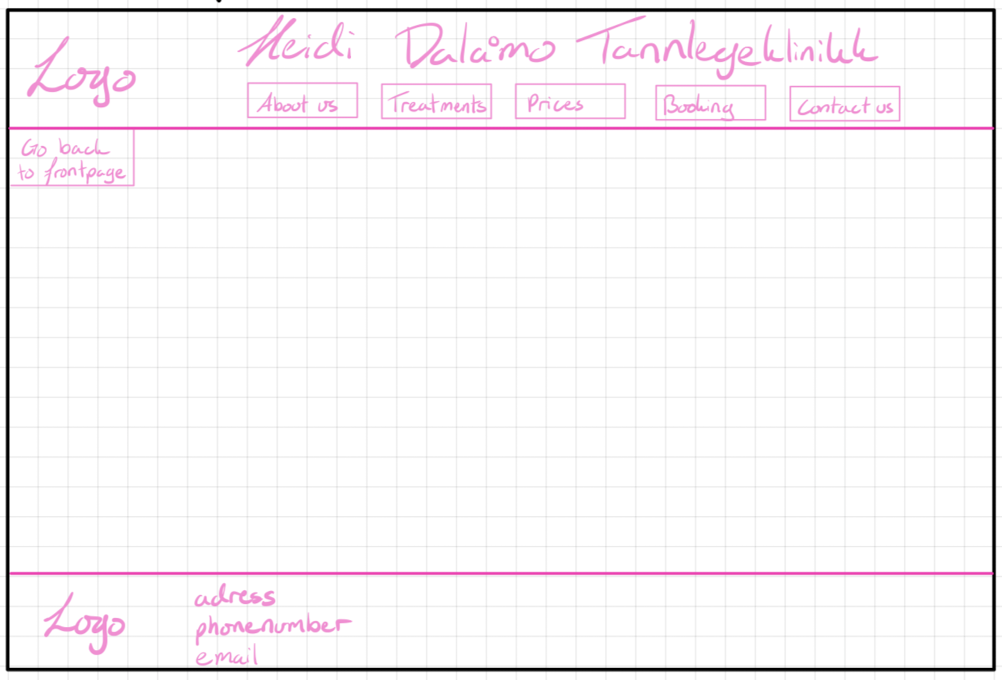 Logo
Heidi Dalåmo Tannlegeklinikk
About us
Treatments
Prices
Booking
Contact us
Go back
to frontpage
Logo
adress
phonenumber
email